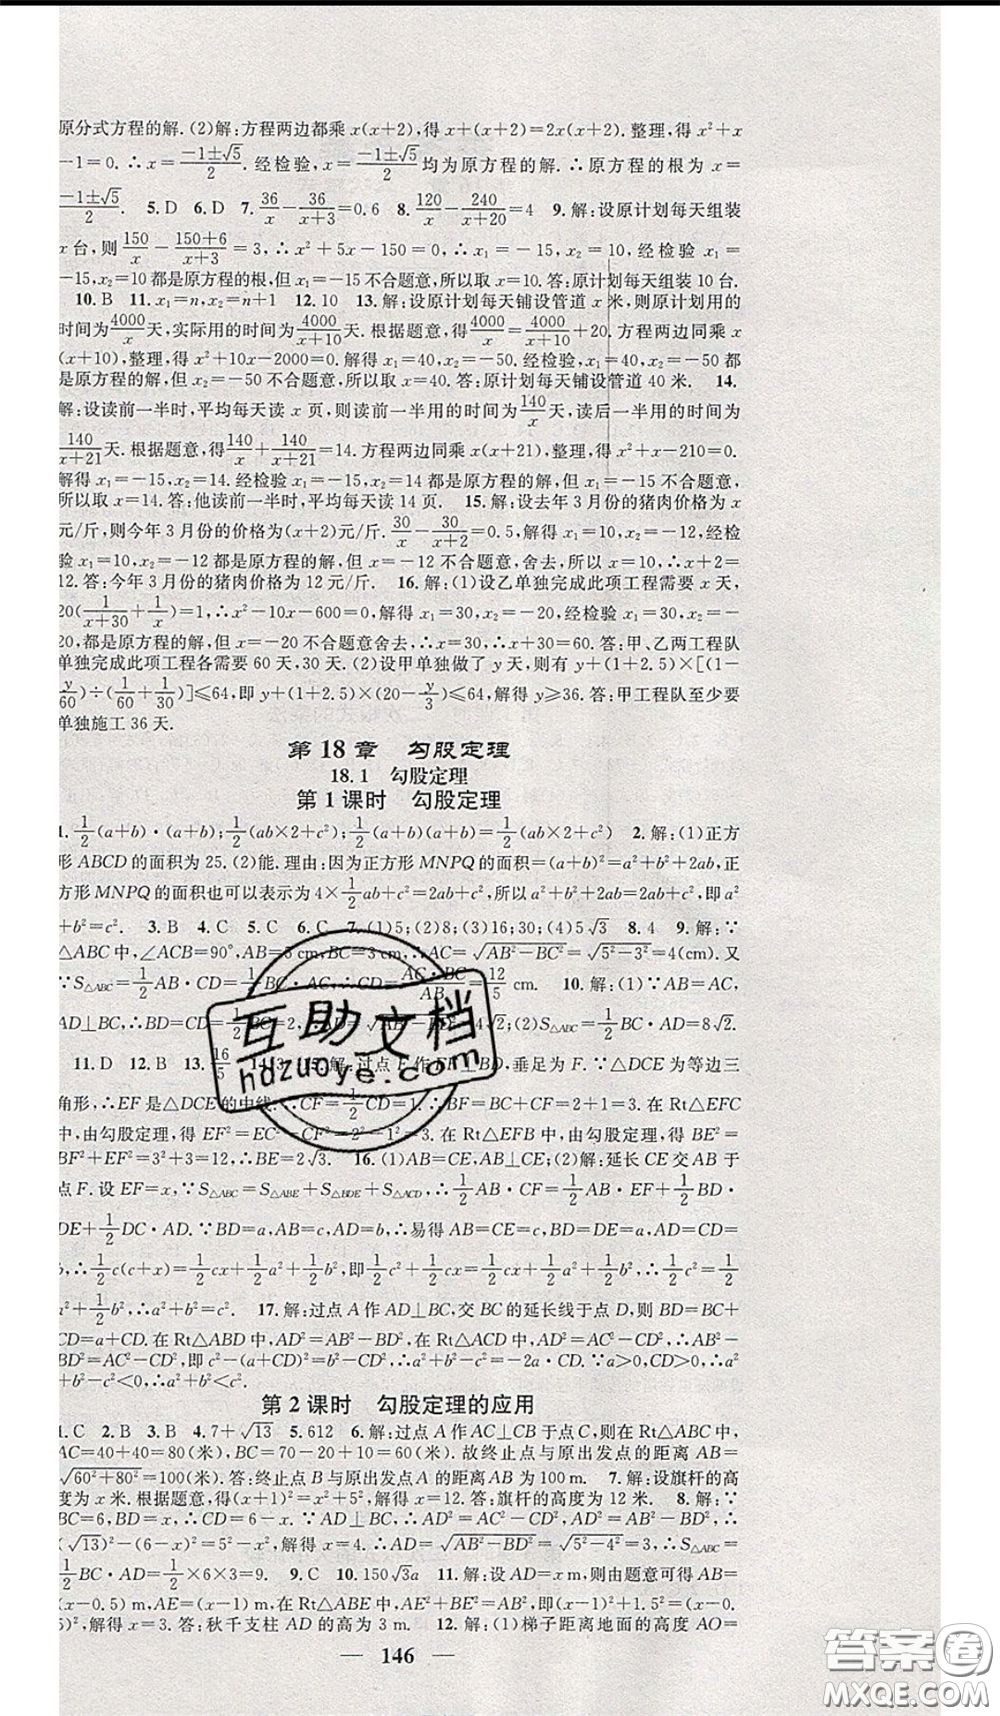 原分式方程的解. (2)解:方程两边都乘 x(x+2),得 x+(x+2)=2x(x+2). 整理,得 x²+x
-1=0. ∴x=(-1±√5)/2. 经检验, x=(-1±√5)/2 均为原方程的解. ∴原方程的根为 x=
(-1±√5)/2. 5. D 6. D 7. 36/x-36/(x+3)=0.6 8. 120/x-240/(x+20)=4 9. 解:设原计划每天组装
x 台,则 150/x-(150+6)/(x+3)=3,∴x²+5x-150=0,∴x₁=-15,x₂=10,经检验 x₁=
-15,x₂=10 都是原方程的根,但 x₁=-15 不合题意,所以取 x=10. 答:原计划每天组装 10 台.
10. B 11. x₁=n,x₂=n+1 12. 10 13. 解:设原计划每天铺设管道 x 米,则原计划用的
时间为 4000/x 天,实际用的时间为 4000/(x+10) 天. 根据题意,得 4000/x=4000/(x+10)+20. 方程两边同乘 x
(x+10),整理,得 x²+10x-2000=0. 解得 x₁=40,x₂=-50. 经检验,x₁=40,x₂=-50 都
是原方程的解,但 x₂=-50 不合题意,所以取 x=40. 答:原计划每天铺设管道 40 米. 14.
解:设读前一半时,平均每天读 x 页,则读前一半用的时间为 140/x 天,读后一半用的时间为
140/(x+21) 天. 根据题意,得 140/x+140/(x+21)=14. 方程两边同乘 x(x+21),整理,得 x²+x-210=0.
解得 x₁=-15,x₂=14. 经检验 x₁=-15,x₂=14 都是原方程的解,但 x₁=-15 不合题意,
所以取 x=14. 答:他读前一半时,平均每天读 14 页. 15. 解:设去年 3 月份的猪肉价格为 x
元/斤,则今年 3 月份的价格为(x+2)元/斤. 30/x-30/(x+2)=0.5,解得 x₁=10,x₂=-12,经检
验 x₁=10,x₂=-12 都是原方程的解,但 x=-12 不合题意,舍去,所以 x=10,∴x+2=
12. 答:今年 3 月份的猪肉价格为 12 元/斤. 16. 解:(1)设乙单独完成此项工程需要 x 天,
20(1/(x+30)+1/x)=1,∴x²-10x-600=0,解得 x₁=30,x₂=-20,经检验 x₁=30,x₂=-
20,都是原方程的解,但 x=-20 不合题意舍去,∴x=30,∴x+30=60. 答:甲、乙两工程队
单独完成此项工程各需要 60 天、30 天. (2)设甲单独做了 y 天,则有 y+(1+2.5)×[(1-
y/60)÷(1/60+1/30)]≤64,即 y+(1+2.5)×(20-y/3)≤64,解得 y≥36. 答:甲工程队至少要
单独施工 36 天.
第 18 章 勾股定理
18.1 勾股定理
第 1 课时 勾股定理
1. 1/2(a+b)·(a+b);1/2(ab×2+c²);1/2(a+b)(a+b)=1/2(ab×2+c²) 2. 解:(1)正方
形 ABCD 的面积为 25. (2)能. 理由:因为正方形 MNPQ 的面积=(a+b)²=a²+b²+2ab,正
方形 MNPQ 的面积也可以表示为 4×1/2ab+c²=2ab+c²,所以 a²+b²+2ab=2ab+c²,即 a²
+b²=c². 3. B 4. C 5. C 6. C 7. (1)5;(2)8;(3)16;30;(4)5√3 8. 4 9. 解:∵
△ABC 中,∠ACB=90°,AB=5 cm,BC=3 cm,∴AC=√(AB²-BC²)=√(5²-3²)=4(cm). 又
∵S△ABC=1/2AB·CD=1/2BC·AC,∴CD=AC·BC/AB=12/5 cm. 10. 解:(1)∵AB=AC,
AD⊥BC,∴BD=CD=1/2BC=2,∴AD=√(AB²-BD²)=4√2;(2)S△ABC=1/2BC·AD=8√2.
11. D 12. B 13. 16/5 14. 3 15. 解:过点 E 作 EF⊥BD,垂足为 F. ∵△DCE 为等边三
角形,∴EF 是△DCE 的中线,∴CF=1/2CD=1. ∴BF=BC+CF=2+1=3. 在 Rt△EFC
中,由勾股定理,得 EF²=EC²-CF²=2²-1²=3. 在 Rt△EFB 中,由勾股定理,得 BE²=
BF²+EF²=3²+3=12. ∴BE=2√3. 16. (1)AB=CE,AB⊥CE;(2)解:延长 CE 交 AB 于
点 F. 设 EF=x,∵S△ABC=S△ABE+S△BDE+S△ACD,∴1/2AB·CF=1/2AB·EF+1/2BD·
DE+1/2DC·AD. ∵BD=a,AB=c,AD=b,∴易得 AB=CE=c,BD=DE=a,AD=CD=
b,∴1/2c(c+x)=1/2cx+1/2a²+1/2b²,即 1/2c²+1/2cx=1/2cx+1/2a²+1/2b²,∴1/2c²=1/2
a²+1/2b²,∴a²+b²=c². 17. 解:过点 A 作 AD⊥BC,交 BC 的延长线于点 D,则 BD=BC+
CD=a+CD. 在 Rt△ABD 中,AD²=AB²-BD²,在 Rt△ACD 中,AD²=AC²-CD²,∴AB²-
BD²=AC²-CD²,即 c²-(a+CD)²=b²-CD²,∴a²+b²-c²=-2a·CD. ∵a>0,CD>0,∴a²
+b²-c²<0,∴a²+b²<c².
第 2 课时 勾股定理的应用
1. C 2. B 3. B 4. 7+√13 5. 612 6. 解:过点 A 作 AC⊥CB 于点 C,则在 Rt△ABC 中,
AC=40+40=80(米),BC=70-20+10=60(米). 故终止点与原出发点的距离 AB=
√(60²+80²)=100(米). 答:终止点 B 与原出发点 A 的距离 AB 为 100 m. 7. 解:设旗杆的高
度为 x 米. 根据题意,得(x+1)²=x²+5²,解得 x=12. 答:旗杆的高度为 12 米. 8. 解:∵
BC=6,BD=x,∴CD=6-x. ∵AD⊥BC,∴AD²=AC²-CD²,AD²=AB²-BD²,∴
(√13)²-(6-x)²=5²-x²,解得 x=4. ∴AD=√(AB²-BD²)=√(5²-4²)=3. ∴S△ABC=
1/2BC·AD=1/2×6×3=9. 9. C 10. 150√3a 11. 解:设 AD=x m,则由题意可得 AB=
(x-0.5) m,AE=(x-1) m,在 Rt△ABE 中,AE²+BE²=AB²,即(x-1)²+1.5²=(x-
0.5)²,解得 x=3. 答:秋千支柱 AD 的高为 3 m. 12. 解:(1)梯子距离地面的高度 AO=
— 146 —
互助文档
hdzuoye.com
答案卷
MXQE.COM